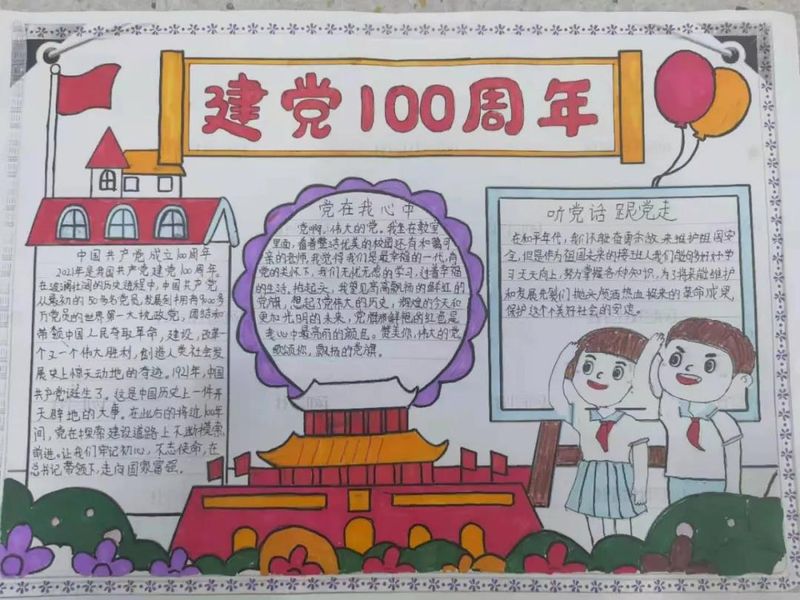 建党100周年
中国共产党成立100周年
2021年是我国共产党建党100周年
在波澜壮阔的历史进程中,中国共产党
从最初的50多名党员,发展到拥有9000多
万党员的世界第一大执政党,团结和
带领中国人民夺取革命,建设,改革一
个又一个伟大胜利,创造人类社会发
展史上惊天动地的奇迹,1921年,中国
共产党诞生了。这是中国历史上一件开
天辟地的大事。在此后的将近100年
间,党在探索建设道路上不断摸索
前进。让我们牢记初心,不忘使命,在
总书记带领下,走向国家富强。
党在我心中
党啊,伟大的党。我坐在教室
里面,看着整洁优美的校园还有和蔼可
亲的老师,我觉得我们是最幸福的一代,有
党的关怀下,我们无忧无虑的学习,过着幸福
的生活,抬起头,我望见高高飘扬的鲜红的
党旗,想起了党伟大的历史,辉煌的今天和
更加光明的未来,党旗那鲜艳的红色是
我心中最亮丽的颜色。赞美你,伟大的党
歌颂你,飘扬的党旗。
听党话 跟党走
在和平年代,我们不能奋勇杀敌来维护祖国安
全,但是作为祖国未来的接班人我们能的好好学
习天天向上,努力掌握各种知识,为了将来能维护
和发展先辈们抛头颅洒热血换来的革命成果,
保护这个美好社会的安定。